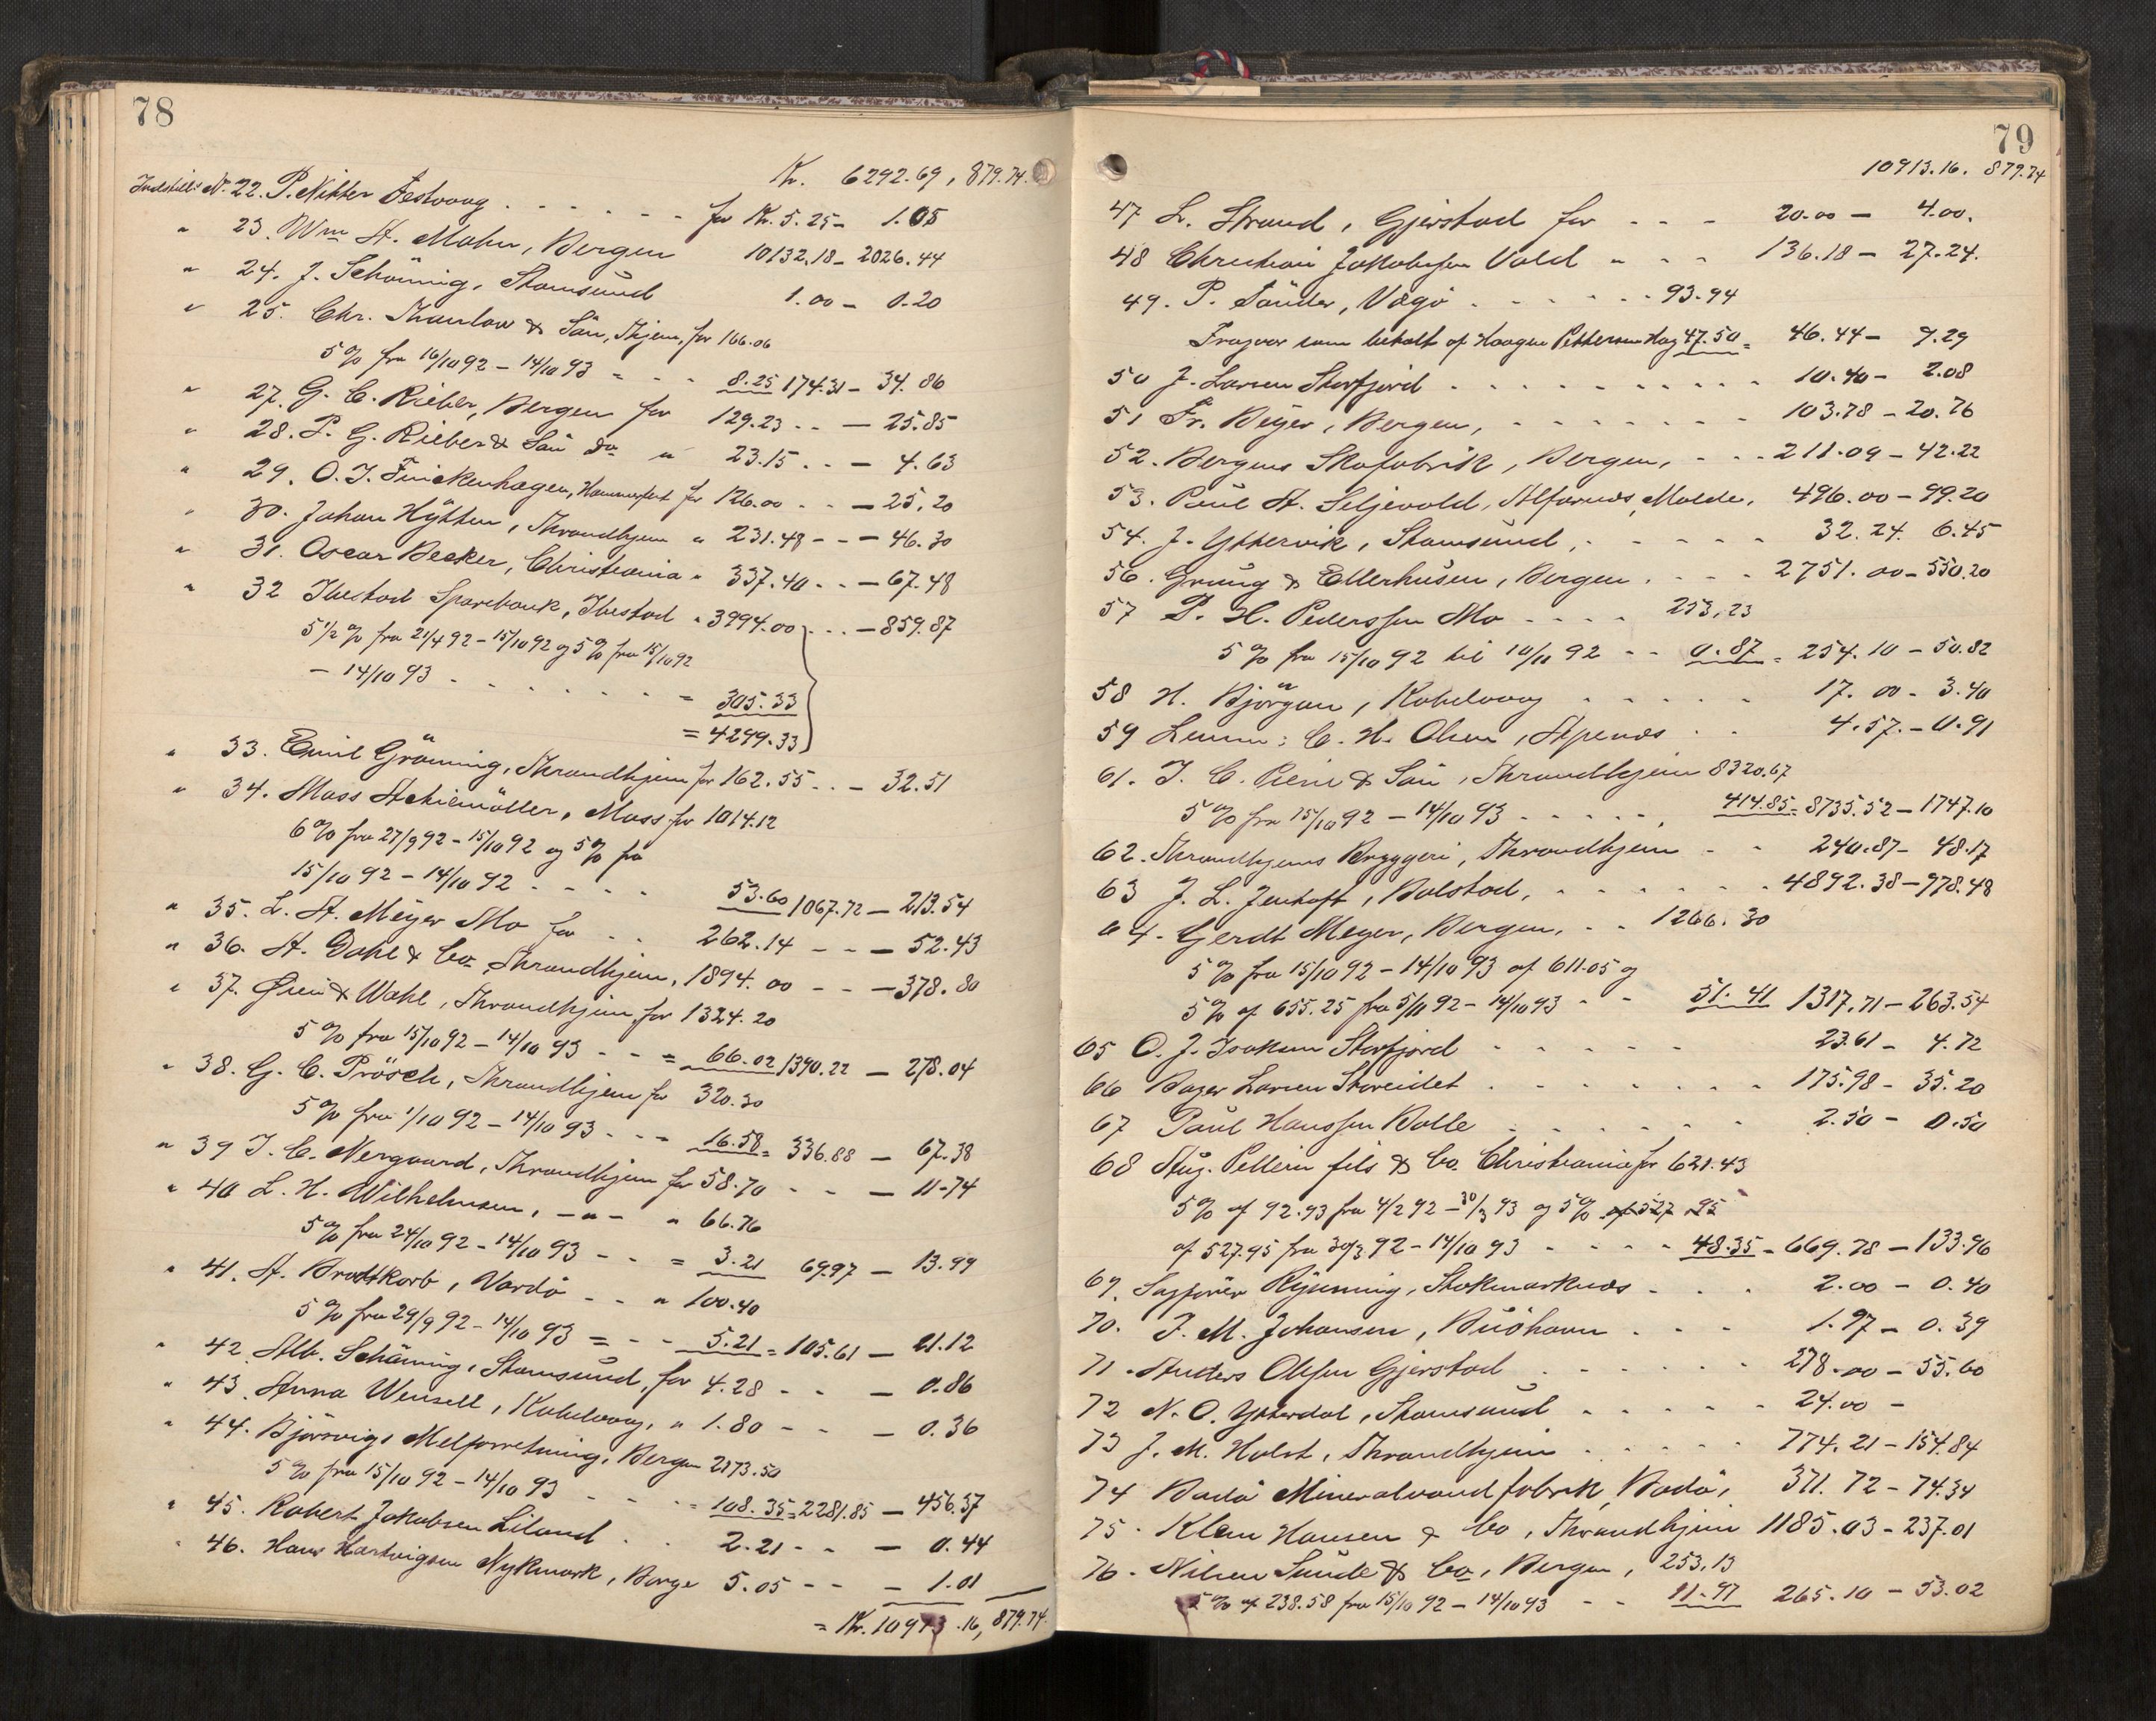 78
Kr. 6292.69, 879.74.
Indstill: No 22. P. Nikter Festvaag . . . . . . for Kr. 5.25 - 1.05
" 23. Wm A. Mohn, Bergen 10132.18 - 2026.44
" 24. J. Schöning, Stamsund 1.00 - 0.20
" 25. Chr. Thaulow & Sön, Thjem, for 166.06
5 % fra 16/10 92 - 14/10 93 = - - 8.25 174.31 - 34.86
" 27. G. C. Rieber, Bergen for 129.23 . . - 25.85
" 28. P. G. Rieber & Sön do " 23.15 . . - 4.63
" 29. O. J. Finckenhagen, Hammerfest for 126.00 . . - 25.20
" 30. Johan Hÿtten, Throndhjem " 231.48 - - - 46.30
" 31. Oscar Becker, Christiania " 337.40 . . - 67.48
" 32 Ibestad Sparebank, Ibestad " 3994.00 . . . - 859.87
5 1/2 % fra 21/4 92 - 15/10 92 og 5 % fra 15/10 92
- 14/10 93 . . . . . . . = 305.33
= 4299.33
" 33. Emil Gröning, Throndhjem for 162.55 . . - 32.51
" 34. Moss Aktiemöller, Moss for 1014.12
6 % fra 27/9 92 - 15/10 92 og 5 % fra
15/10 92 - 14/10 92 . - - . 53.60 1067.72 - 213.54
" 35. L. A. Meÿer Mo for . . 262.14 - - - 52.43
" 36. A. Dahl & Co, Throndhjem, 1894.00 - - - 378.80
" 37. Øien & Wahl, Throndhjem, for 1324.20
5 % fra 15/10 92 - 14/10 93 - - = 66.02 1390.22 - 278.04
" 38. G. C. Prösch, Throndhjem for 320.30
5 % fra 1/10 92 - 14/10 93 - - - 16.58 = 336.88 - 67.38
" 39 J. C. Nergaard, Throndhjem for 58.70 - - - 11-74
" 40 L. H. Wilhelmsen, - " - " 66.76
5 % fra 24/10 92 - 14/10 93 - - = 3.21 69.97 - 13.99
" 41. A. Brodtkorb, Vardö - - " 100.40
5 % fra 29/9 92 - 14/10 93 = - - 5.21 = 105.61 - 21.12
" 42. Alb. Schöning, Stamsund, for 4.28 - - - 0.86
" 43. Anna Wensell, Kabelvaag, " 1.80 - - - 0.36
" 44. Björsvigs Melforretning, Bergen 2173.50
5 % fra 15/10 92 - 14/10 93 - - - = 108.35 = 2281.85 - 456.37
" 45. Robert Jakobsen Liland . . 2.21 - - - 0.44
" 46. Hans Hartvigsen Nykmark, Borge 5.05 - - - 1.01
= Kr. 10913.16, 879.74.
79
10913.16. 879.74
47 L. Strand, Gjerstad for - - - 20.00 - 4.00.
48 Christian Jakobsen Vold - - - 136.18 - 27.24.
49. P. Sönder, Vaagö . - - - - - 93.94
Fragaar som betalt af Haagen Pettersen Hag 47.50 = 46.44 - 9.29
50 J. Larsen Storfjord . . . . . . . . . 10.40 - 2.08
51 Fr. Beÿer, Bergen, - - - - - - - 103.78 - 20.76
52. Bergens Skofabrik, Bergen, - - - 211.09 - 42.22
53. Paul A. Seljevold, Alfarnæs, Molde. 496.00 - 99.20
54. J. Yttervik, Stamsund, - - - - - 32.24. 6.45
56. Grung & Ellerhusen, Bergen . - - - 2751.00 - 550.20
57 P. H. Pederssen Mo - - - - 253.23
5 % fra 15/10 92 til 10/11 92 - - 0.87 = 254.10 - 50.82
58 H. Björgan, Kabelvaag - - - - - 17.00 - 3.40
59 Lensm: C. H. Olsen, Alpenæs . . 4.57. - 0.91
61. J. C. Piene & Sön, Throndhjem 8320.67
5 % fra 15/10 92 - 14/10 93 - - - - - . 414.85 = 8735.52 - 1747.10
62. Throndhjems Bryggeri, Throndhjem - - 240.87 - 48.17
63 J. L. Jentoft, Balstad, - - - - - - - 4892.38 - 978.48
64. Gerdt Meyer, Bergen, - - 1266.30
5 % fra 15/10 92 - 14/10 93 af 611.05 og
5 % af 655.25 fra 5/11 92 - 14/10 93 - - 51.41 1317.71 - 263.54
65 O. J. Isaksen Storfjord - - - - - 23.61 - 4.72
66 Roger Larsen Storeidet . - - - - - - 175.98 - 35.20
67 Paul Hanssen Bolle - - - - - - 2.50 - 0.50
68 Aug. Pellerin fils & Co. Christiania for 621.43
5 % af 92.93 fra 4/2 92 - 30/3 93 og 5 % af 527.95
af 527.95 fra 30/3 92 - 14/10 93 - - - - 48.35 - 669.78 - 133.96
69. Sagfører Rÿnning, Stokmarknæs - . . 2.00 - 0.40
70. J. M. Johansen, Buöhavn . . . 1.97 - 0.39
71. Anders Olssen Gjerstad . - - - - - 278.00 - 55.60
72 N. O. Ytterdal, Stamsund . - - - - 24.00 -
73 J. M. Holst, Throndhjem - . . . . 774.21 - 154.84
74 Bodö Mineralvandfabrik, Bodö, 371.72 - 74.34
75. Klam Hansen & Co, Throndhjem 1185.03 - 237.01
76. Nilsen Sunde & Co, Bergen, 253.13
5 % af 238.58 fra 15/10 92 - 14/10 93 - - 11.97 265.10 - 53.02